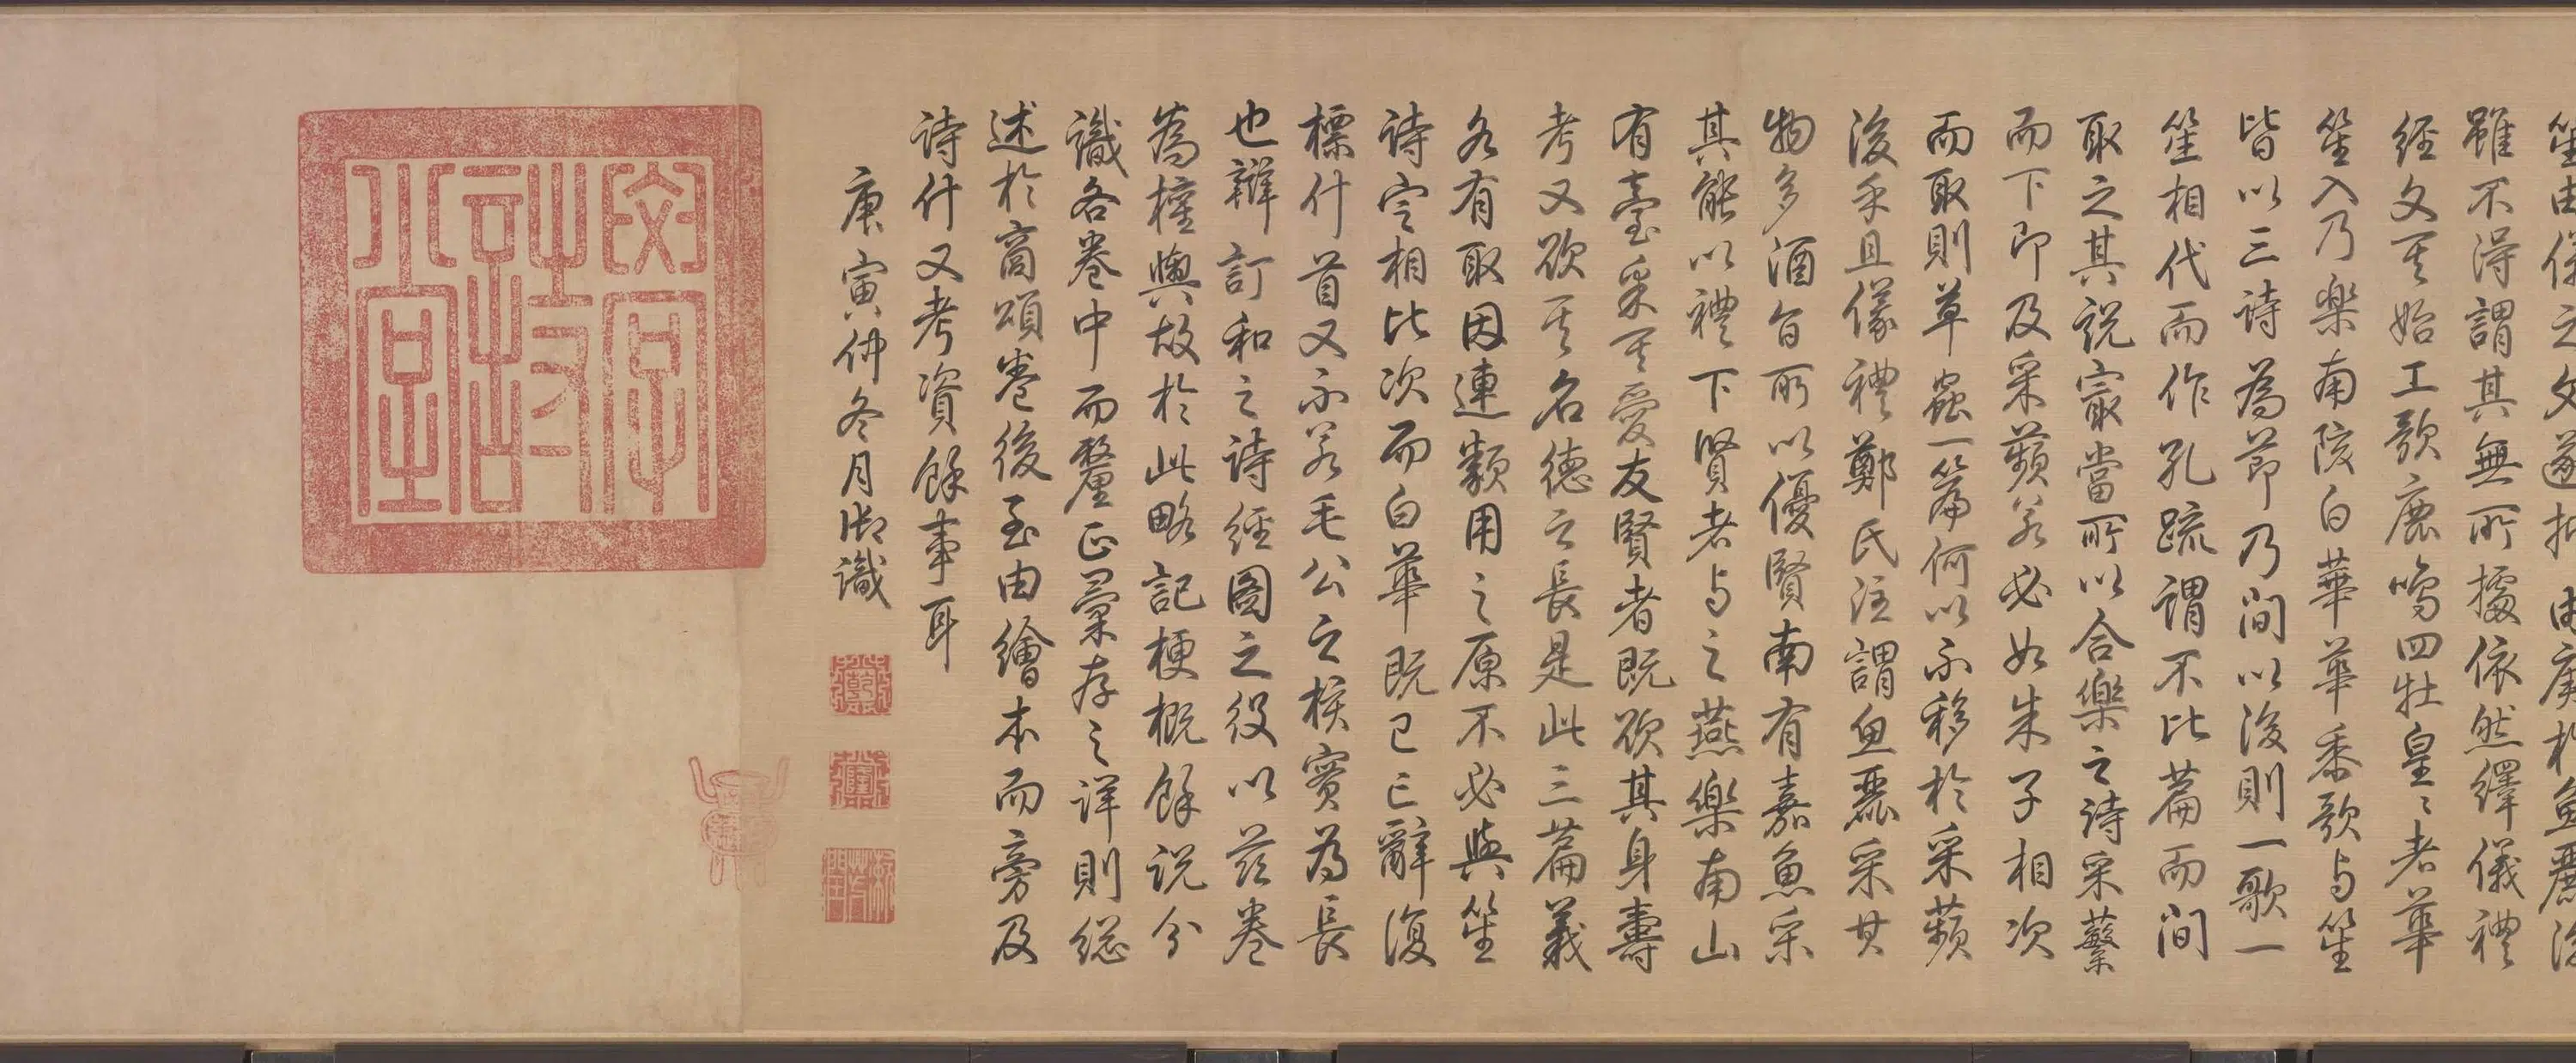 笙由儀之文遂由庚於魚麗後
雖不得謂其無所據依然繹儀禮
經文其始工歌鹿鳴四牡皇〻者華
笙入乃樂南陔白華華黍歌与笙
皆以三詩為節乃間以後則一歌一
笙相代而作孔疏謂不比篇而間
取之其說冣當所以合樂之詩采蘩
而下即及采蘋若必如朱子相次
而取則草蟲一篇何以不移於采蘋
後乎且儀禮鄭氏注謂魚麗采其
物多酒旨所以優賢南有嘉魚采
其能以禮下賢者与之燕樂南山
有臺采其愛友賢者既欲其身壽
考又欲其名德之長是此三篇義
各有取因連類用之原不必與笙
詩定相比次而白華既已亡辭復
標什首又不若毛公之核實為長
也辯訂和之詩經圖之役以茲卷
為權輿故於此略記梗概餘說分
識各卷中而釐正彙存之詳則総
述於商頌卷後至由繪本而旁及
詩什又考資餘事耳
庚寅仲冬月御識
漱芳潤